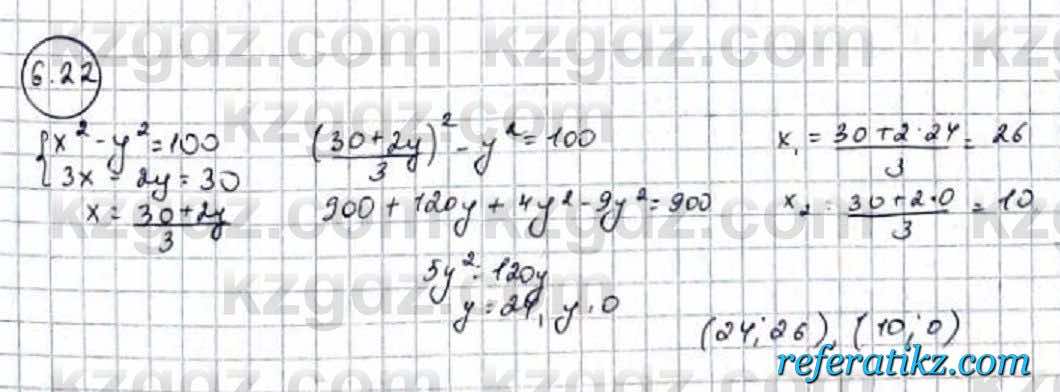 6.22
x² - y² = 100
3x - 2y = 30
x = (30+2y)/3
((30+2y)/3)² - y² = 100
900 + 120y + 4y² - 9y² = 900
5y² = 120y
y = 24, y = 0
x₁ = (30+2·24)/3 = 26
x₂ = (30+2·0)/3 = 10
(24; 26) (10; 0)
kzgdz.com
referatikz.com